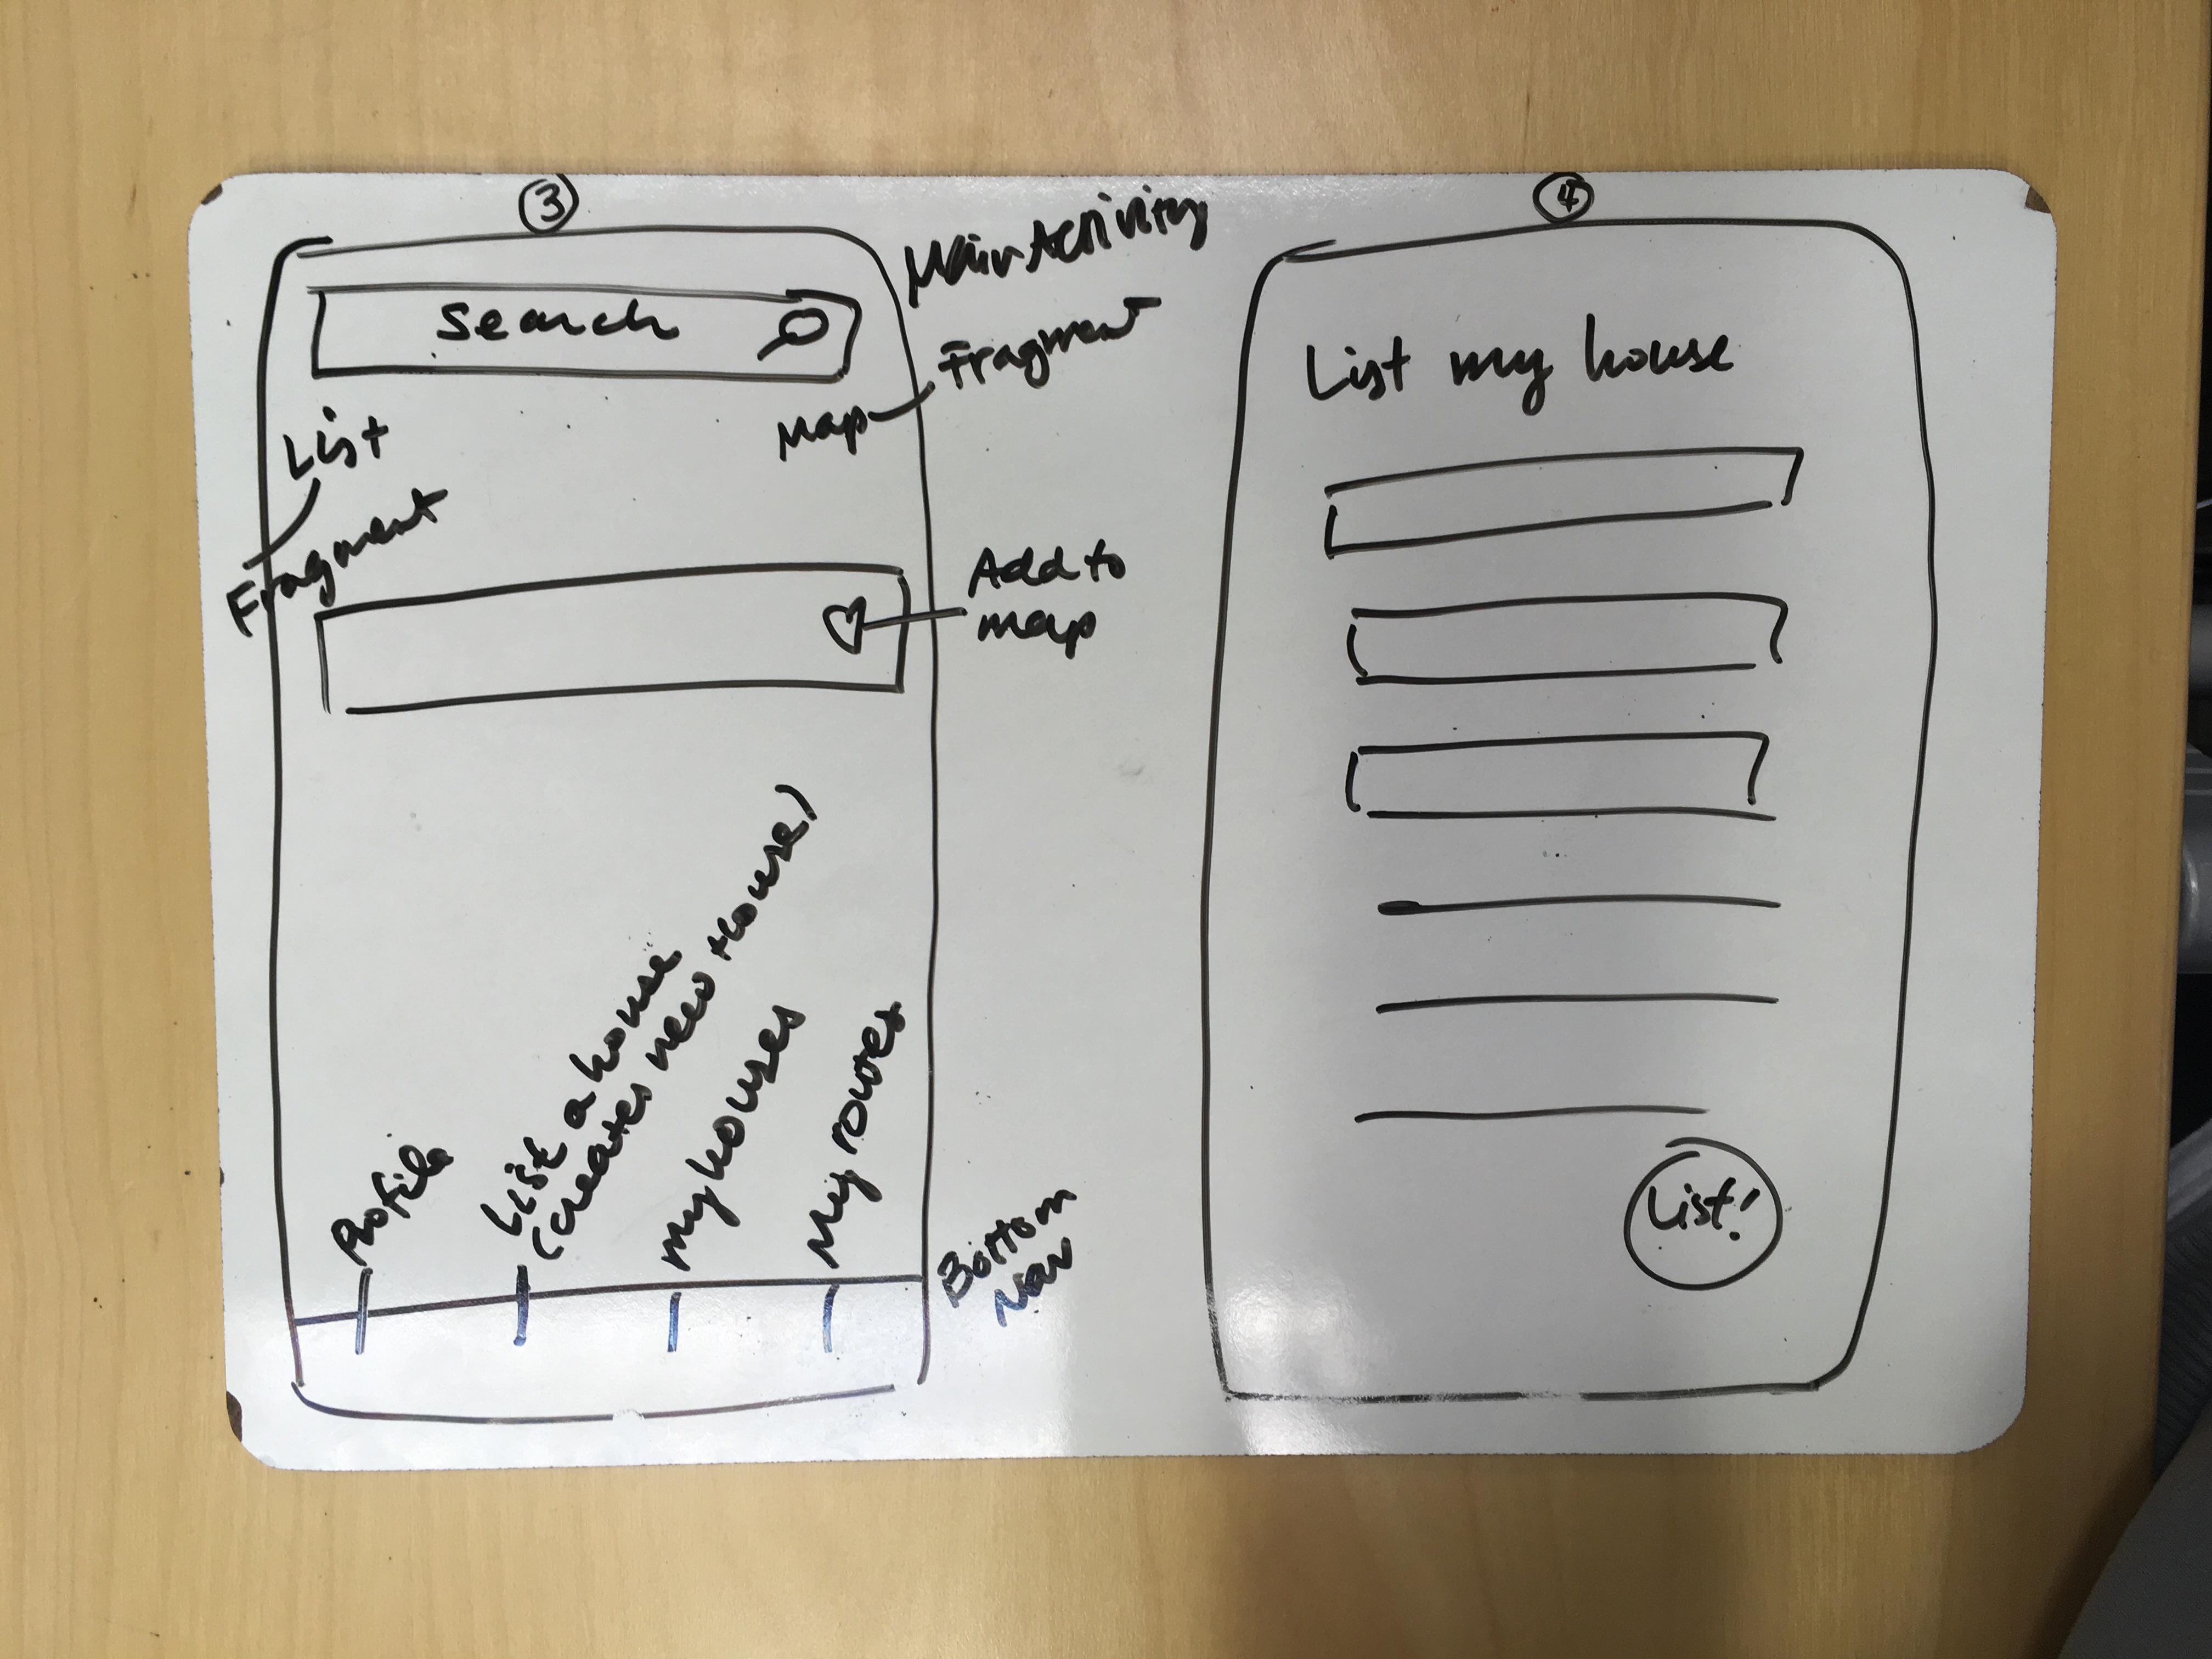 3
Main Activity
Search
Fragment
Map
List
Fragment
Add to
map
Profile
List a house
(creates new house)
my houses
My routes
Bottom
Nav
4
List my house
List!